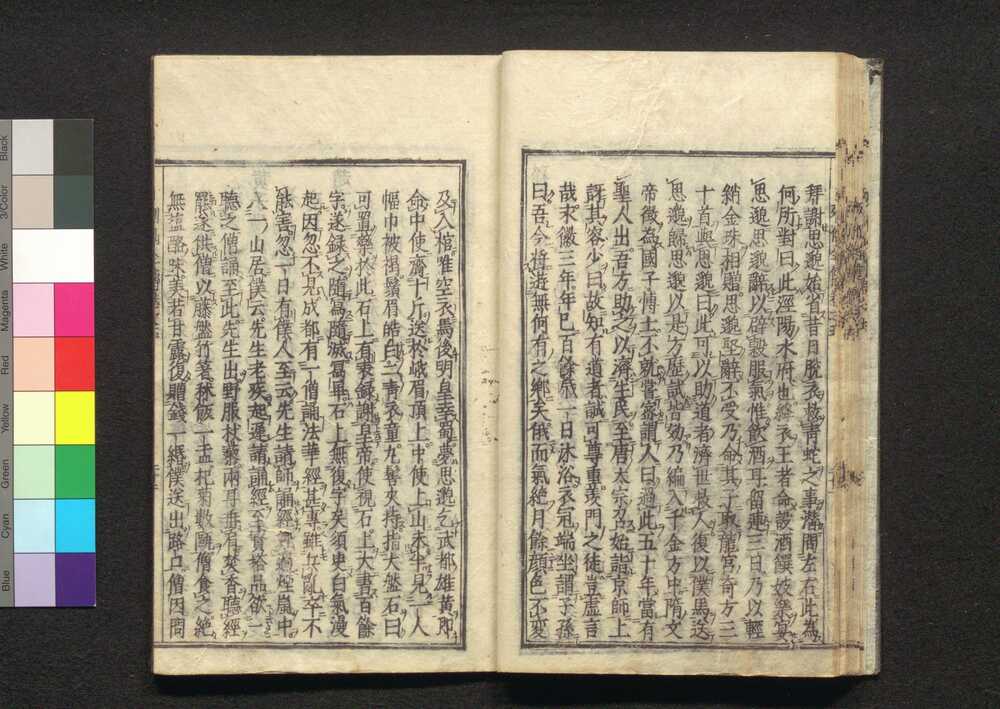 拜謝思邈始省昔日脫衣救青蛇之事潛問左右此為
何所對曰此涇陽水府也絳衣王者命設酒饌妓樂宴
思邈思邈辭以辟穀服氣惟飲酒耳留連三日乃以輕
綃金珠相贈思邈堅辭不受乃命其子取龍宮奇方三
十首與思邈曰此可以助道者濟世救人復以僕馬送
思邈歸思邈以是方歷試皆効乃編入千金方中隋文
帝徵為國子博士不就嘗密謂人曰過此五十年當有
聖人出吾方助之以濟生民至唐太宗召始詣京師上
訝其容少曰故知有道者誠可尊重羨門之徒豈虛言
哉永徽三年年已百餘歲一日沐浴衣冠端坐謂子孫
曰吾今將遊無何有之鄉矣俄而氣絕月餘顏色不變
及入棺唯空衣焉後明皇幸蜀夢思邈乞武都雄黃即
命中使齎十斤送於峨眉頂上中使上山未半見一人
幅巾被褐鬚眉皓白二青衣童丸髻夾持指大盤石曰
可置藥於此石上有表錄謝皇帝使視石上大書百餘
字遂錄之隨寫隨滅寫畢石上無復字矣須臾白氣漫
起因忽不見成都有一僧誦法華經甚專雖兵亂卒不
能害忽一日有僕人至云先生請師誦經
過烟嵐中
入一山居僕云先生老疾起遲請誦經至寶塔品欲一
聽之僧誦至此先生出野服杖藜兩耳垂肩焚香聽經
罷遂供僧以藤盤竹箸秫飯一盂杞菊數甌僧食之絕
無鹽酪味美若甘露復贈錢一緡僕送出路口僧因問
Blue
Cyan
Green
Yellow
Red
Magenta
White
3/Color
Black